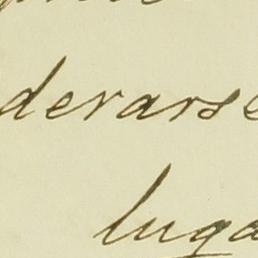 derarse
luga